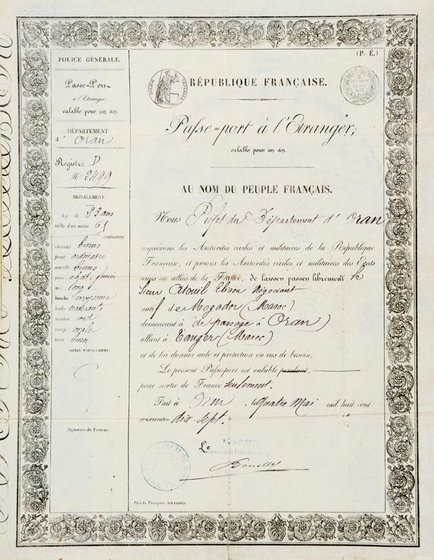 (P. É.)
POLICE GÉNÉRALE.
Passe-Port
à l'Étranger,
valable pour un an.
DÉPARTEMENT
d Oran
Registre D
N° 2499
SIGNALEMENT.
Age de 33 ans
taille d'un mètre 65
centimètres
cheveux bruns
front
sourcils bruns
yeux
nez long
bouche moyenne
barbe
menton rond
visage ovale
teint brun
SIGNES PARTICULIERS:
Signature du Porteur:
RÉPUBLIQUE FRANÇAISE.
Passe-port à l'Étranger,
valable pour un an.
AU NOM DU PEUPLE FRANÇAIS.
Nous Préfet du Département d'Oran
requérons les Autorités civiles et militaires de la République
Française, et prions les Autorités civiles et militaires des États
amis ou alliés de la France, de laisser passer librement le
Sieur négociant
natif de Mogador (Maroc)
demeurant à de passage à Oran)
allant à Tanger (Maroc)
et de lui donner aide et protection en cas de besoin.
Le présent Passe-port est valable pendant
pour sortir de France seulement.
Fait à Oran le Quatre Mai mil huit cent
soixante dix sept.
Le
Prix du Passe-port